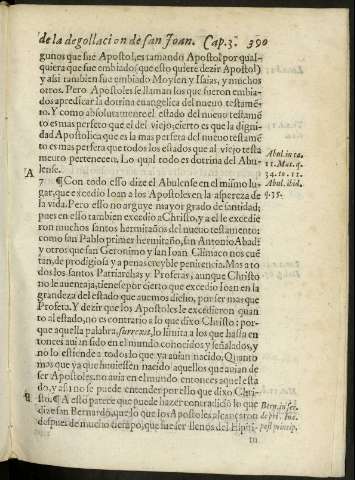 de la degollacion de san Joan. Cap.3. 390
gunos que fue Apostol, es tamando Apostol por qual-
quiera que fue embiado (que esto quiere dezir Apostol)
y asi tambien fue embiado Moysen y Isaias, y muchos
otros. Pero Apostoles se llaman los que fueron embia-
dos a predicar la dotrina euangelica del nueuo testamē-
to. Y como absolutamente el estado del nueuo testamē
to es mas perfeto que el del viejo, cierto es que la digni-
dad Apostolica que es la mas perfeta del nueuo testamē
to es mas perfeta que todos los estados que al viejo testa
mento pertenecen. Lo qual todo es dotrina del Abu-
lense.
Abul. in ca.
11. Mat. q.
34. to. 11.
A
7 ¶ Con todo esso dize el Abulense en el mismo lu-
gar, que excedio Ioan a los Apostoles en la aspereza de
la vida. Pero esso no arguye mayor grado de santidad;
pues en esso tambien excedio a Christo, y a el le excedie
ron muchos santos hermitaños del nueuo testamento:
como san Pablo primer hermitaño, san Antonio Abad,
y otros que san Geronimo y san Ioan Climaco nos cuē
tan, de prodigiosa y a penas creyble penitencia. Mas a to
dos los santos Patriarchas y Profetas, aunque Christo
no le auentaja, tienese por cierto que excedio Ioan en la
grandeza del estado que auemos dicho, por ser mas que
Profeta. Y dezir que los Apostoles le excedieron quan
to al estado, no es contrario a lo que dixo Christo: por-
que aquella palabra, surrexit, lo limita a los que hasta en
tonces auian sido en el mundo conocidos y señalados, y
no lo estiende a todos lo que ya auian nacido. Quanto
mas que ya que huuiessen nacido aquellos que auian de
ser Apostoles, no auia en el mundo entonces aquel esta
do, y asi no se puede entender por ello que dixo Chri-
sto. ¶ A esto parece que puede hazer contradició lo que
dize san Bernardo, que lo que los Apostoles alcançaron
despues de mucho tiempo, que fue ser llenos del Espiri-
Abul. ibid.
q. 35.
B
Bern. in ser.
de pri. Ioā.
post princip.
tu